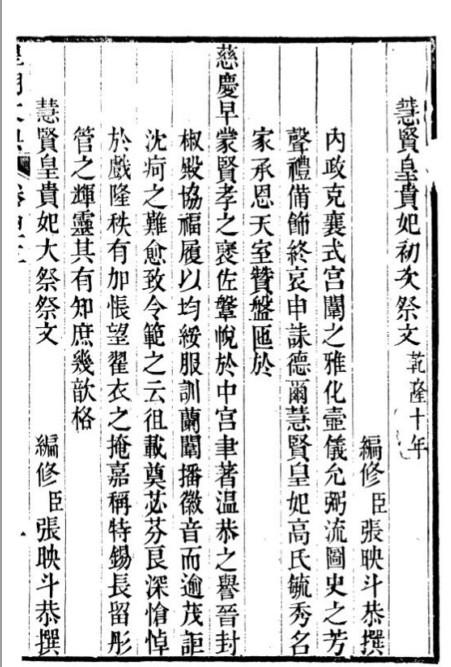 慧賢皇貴妃初次祭文 乾隆十年
編修臣張映斗恭撰
內政克襄式宮闈之雅化壼儀允弼流圖史之芳
聲禮備飾終哀申誄德爾慧賢皇妃高氏毓秀名
家承恩天室贊盤匜於
慈慶早蒙賢孝之褒佐鞶帨於中宮聿著温恭之譽晉封
椒殿協福履以均綏服訓蘭闈播徽音而逾茂詎
沈疴之難愈致令範之云徂載奠苾芬良深愴悼
於戲隆秩有加悵望翟衣之掩嘉稱特錫長留彤
管之輝靈其有知庶幾歆格
慧賢皇貴妃大祭祭文
編修臣張映斗恭撰
皇朝文典 卷